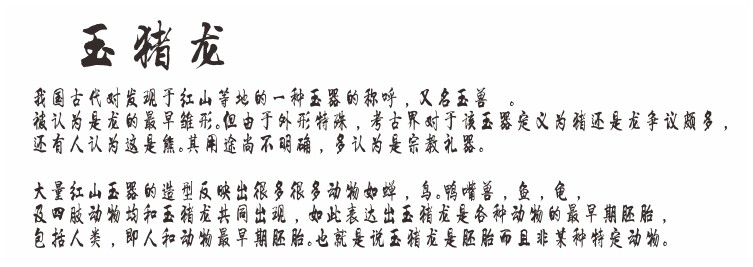 玉猪龙
我国古代对发现于红山等地的一种玉器的称呼，又名玉兽 。
被认为是龙的最早雏形。但由于外形特殊，考古界对于该玉器定义为猪还是龙争议颇多，
还有人认为这是熊。其用途尚不明确，多认为是宗教礼器。
大量红山玉器的造型反映出很多很多动物如蝉，鸟。鸭嘴兽，鱼，龟，
及四肢动物均和玉猪龙共同出现，如此表达出玉猪龙是各种动物的最早期胚胎，
包括人类，即人和动物最早期胚胎。也就是说玉猪龙是胚胎而且非某种特定动物。